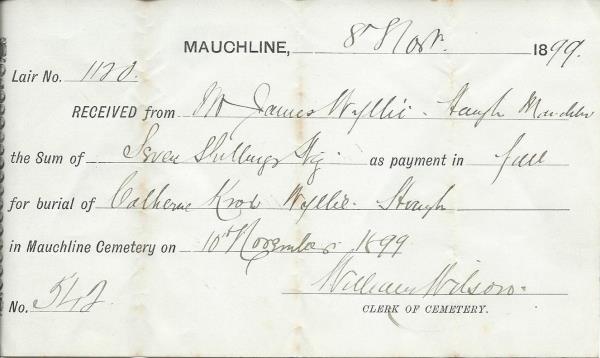 MAUCHLINE, 8th Novr. 1899.
Lair No. 112
RECEIVED from Mr James Wyllie. Haugh Mauchline
the Sum of Seven Shillings Stg. as payment in full
for burial of Catherine Knox Wyllie. Haugh
in Mauchline Cemetery on 10th November 1899
William Wilson.
No. 542. CLERK OF CEMETERY.